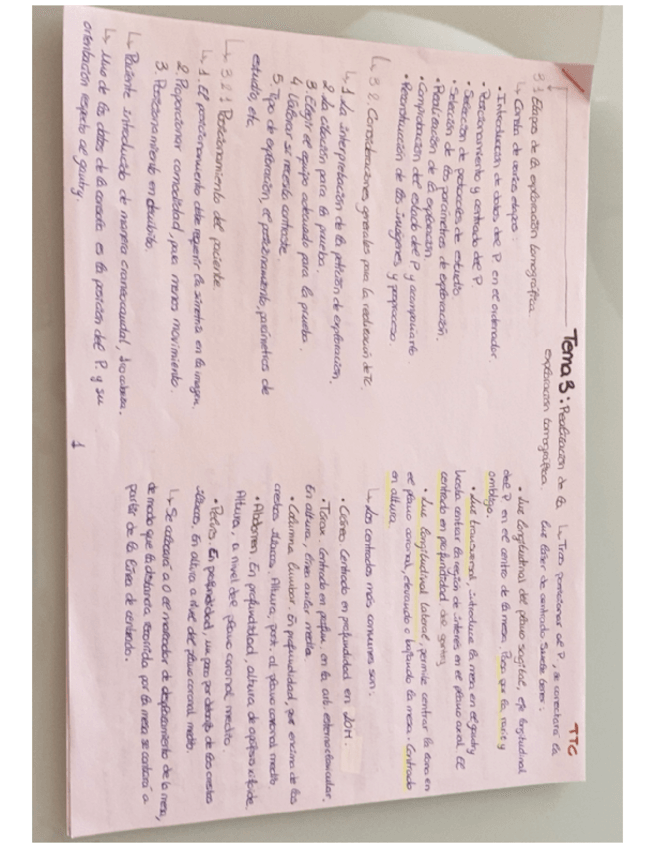 TTC
Tema 3: Realización de la
exploración tomográfica.
3.1 Etapas de la exploración tomográfica
↳ Consta de varias etapas:
• Introducción de datos del P. en el ordenador.
• Posicionamiento y centrado del P.
• Selección de protocolos de estudio
• Selección de los parámetros de exploración.
• Realización de la exploración
• Comprobación del estado del P y acompañarlo
• Reconstrucción de las imágenes y posproceso.
↳ 3.2. Consideraciones generales para la realización de TC.
↳ 1. La interpretación de la petición de exploración,
2. La citación para la prueba.
3. Elegir el equipo adecuado para la prueba.
4. Valorar si necesita contraste.
5. Tipo de exploración, el posicionamiento, parámetros de
estudio, etc
↳ 3.2.1 Posicionamiento del paciente.
↳ 1. El posicionamiento debe requerir la simetría en la imagen.
2. Proporcionar comodidad, para menos movimiento.
3. Posicionamiento en decúbito.
↳ Paciente introducido de manera craneocaudal, 1ro cabeza.
↳ Uno de los datos de la consola es la posición del P. y su
orientación respecto al gantry.
1
↳ Tras posicionar al P, se conectará la
luz láser de centrado. Suele tener:
• Luz longitudinal del plano sagital, eje longitudinal
del P en el centro de la mesa. Pasa por la nariz y
ombligo.
• Luz transversal, introduce la mesa en el gantry
hasta centrar la región de interés en el plano axial. El
centrado en profundidad del gantry
• Luz longitudinal lateral, permite centrar la zona en
el plano coronal, elevando o bajando la mesa. Centrado
en altura
↳ Los centrados más comunes son:
• Cráneo. Centrado en profundidad en LOM.
• Tórax. Centrado en profun. en la art. esternoclavicular.
En altura, línea axilar media.
• Columna lumbar. En profundidad, por encima de las
crestas ilíacas. Altura, post. al plano coronal medio.
• Abdomen. En profundidad, altura de apófisis xifoide.
Altura, a nivel del plano coronal medio.
• Pelvis. En profundidad, un poco por debajo de las crestas
ilíacas. En altura a nivel del plano coronal medio.
↳ Se colocará a 0 el marcador de desplazamiento de la mesa,
de modo que la distancia recorrida por la mesa se contará a
partir de la línea de centrado.